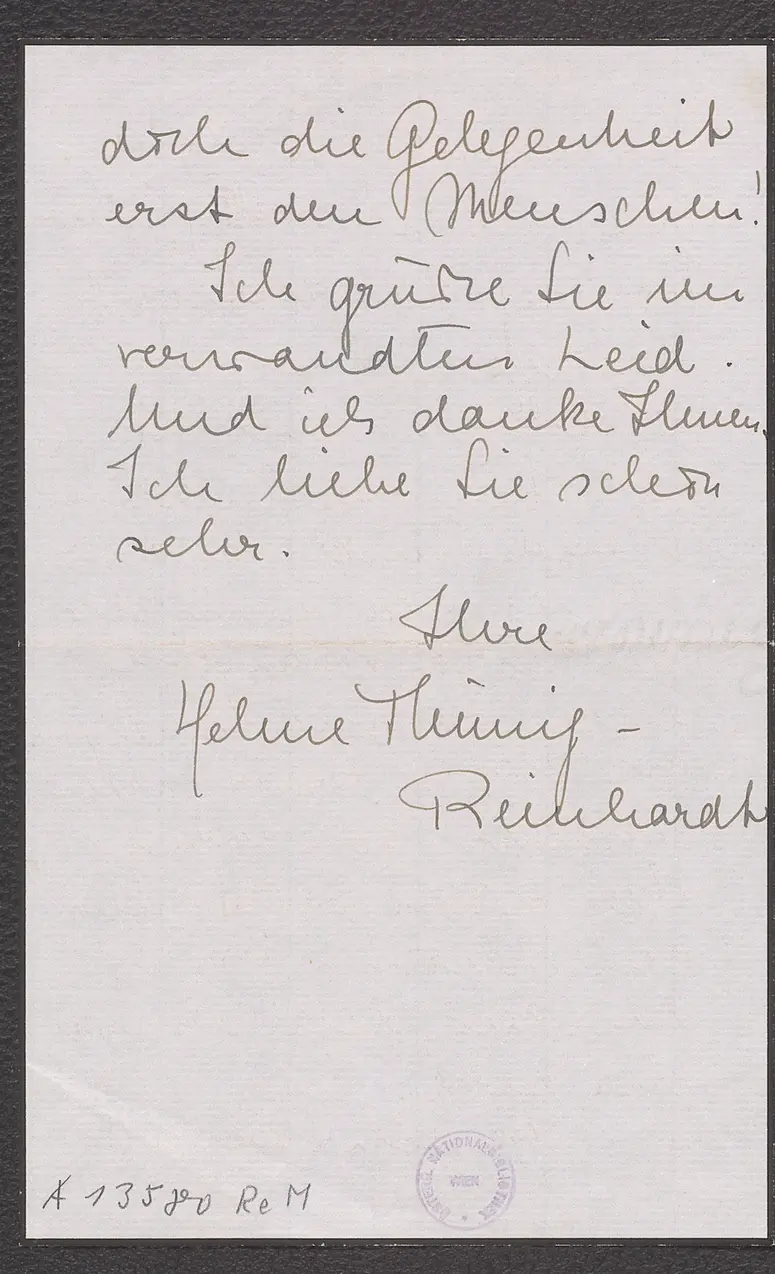 doch die Gelegenheit
erst den Menschen!
Ich grüße Sie im
verwandten Leid.
Und ich danke Ihnen.
Ich liebe Sie schon
sehr.
Ihre
Helene Thimig-
Reinhardt
A 13580 ReM
ÖSTERR. NATIONALBIBLIOTHEK
WIEN